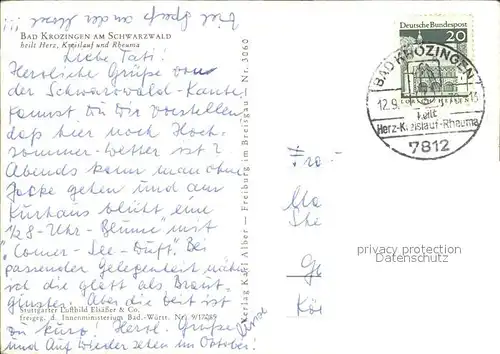 viel Spaß an der Messe !!!
BAD KROZINGEN AM SCHWARZWALD
heilt Herz, Kreislauf und Rheuma
Liebe Tati!
Herzliche Grüße von
der Schwarzwald-Kante!
Kannst Du Dir vorstellen
daß hier noch Hoch-
sommer-Wetter ist?
Abends kann man ohne
Jacke gehen und am
Kurhaus blüht eine
1/2 8-Uhr-Blume" mit
"Comer-See-Duft". Bei
passender Gelegenheit
ich die glatt als Braut-
ginster. Aber die Zeit ist
Stuttgarter Luftbild Elsäßer & Co.
freigeg. d. Innenministerium Bad.-Württ. Nr. 9/17289
zu kurz! Herzl. Grüße
und Auf Wiedersehen im Oktober!
Verlag Karl Alber — Freiburg im Breisgau Nr. 3060
Deutsche Bundespost
20
BAD KROZINGEN
12.9.
heilt
Herz-Kreislauf-Rheuma
7812
privacy protection
Datenschutz